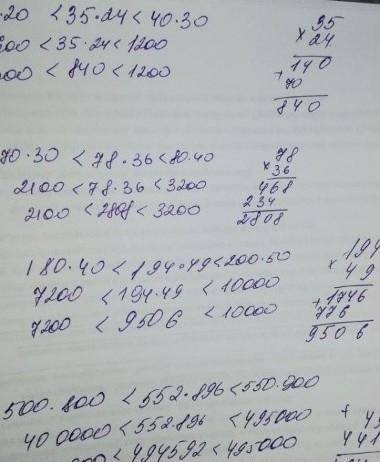 ·20 < 35·24 < 40·30
00 < 35·24 < 1200
00 < 840 < 1200
35
× 24
140
+ 70
840
70·30 < 78·36 < 80·40
2100 < 78·36 < 3200
2100 < 2808 < 3200
78
× 36
468
234
2808
180·40 < 194·49 < 200·50
7200 < 194·49 < 10000
7200 < 9506 < 10000
194
× 49
+ 1746
776
9506
500·800 < 552·896 < 550·900
400000 < 552·896 < 495000
< 494592 < 495000
+
441